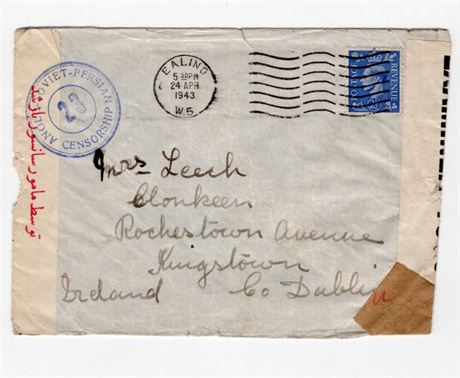 ANGLO-SOVIET-PERSIAN CENSORSHIP
23
توسط مامور سانسور باز شد
EALING
5-30PM
24 APR
1943
W.5
POSTAGE
REVENUE
Mrs Leech
Clonkeen
Rochestown Avenue
Kingstown
Ireland Co Dublin